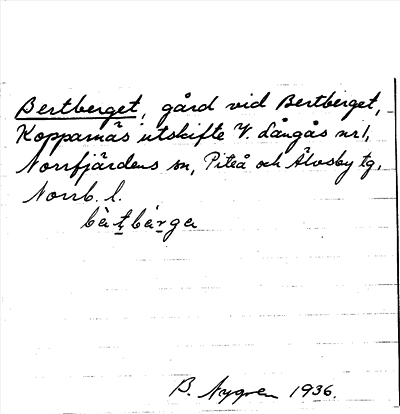 Bertberget, gård vid Bertberget,
Kopparnäs utskifte V. Långås nr 1,
Norrfjärdens sn, Piteå och Älvsby tg,
Norrb. l.
bèṯbèṟga
B. Nygren 1936.